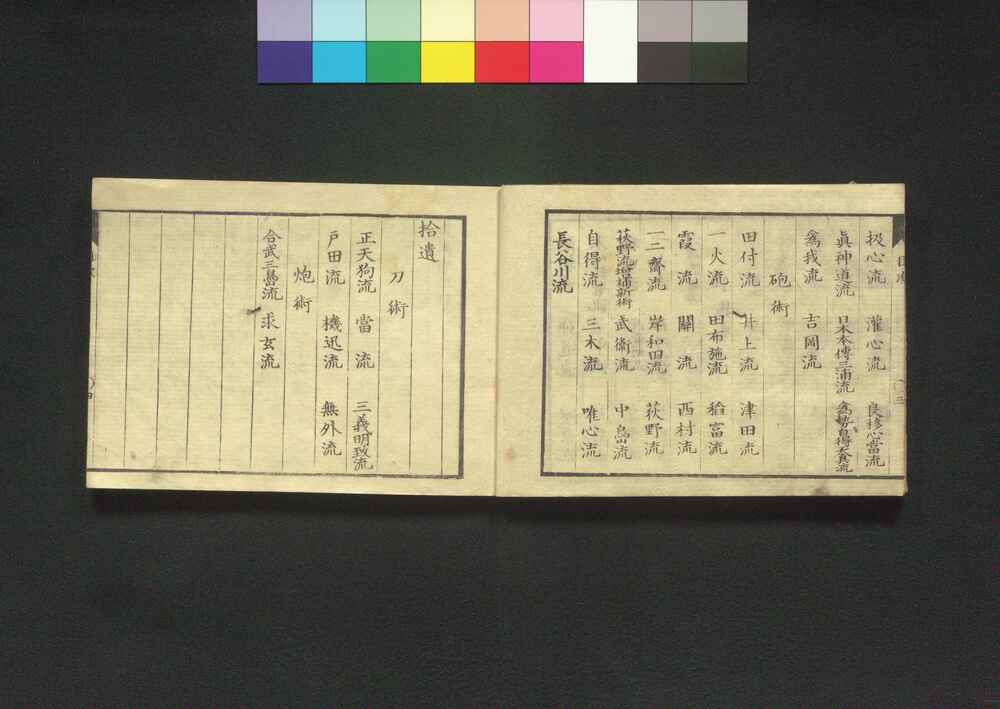 扱心流 灌心流 良移心當流
眞神道流 日本本傳三浦流 為勢自得天真流
為我流 吉岡流
砲術
田付流 井上流 津田流
一火流 田布施流 稲富流
霞流 關流 西村流
一二齋流 岸和田流 荻野流
荻野流増補新術 武衛流 中島流
自得流 三木流 唯心流
長谷川流
拾遺
刀術
正天狗流 當流 三義明致流
戸田流 機迅流 無外流
炮術
合武三島流 求玄流